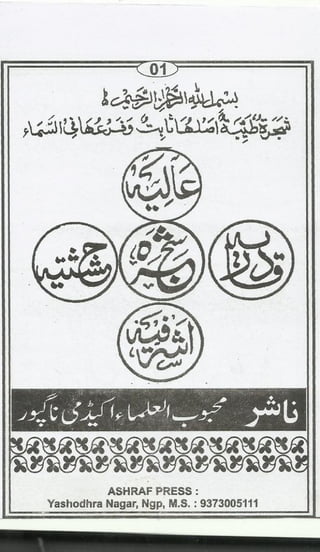 01
بسم اللہ الرحمن الرحیم ہ
شجرۃ طیبۃ اصلھا ثابت و فرعھا فی السماء
عالیہ
قادریہ
شجرہ
چشتیہ
اشرفیہ
ناشر محبوب العلماء اکیڈمی ناگپور
ASHRAF PRESS :
Yashodhra Nagar, Ngp, M.S. : 9373005111